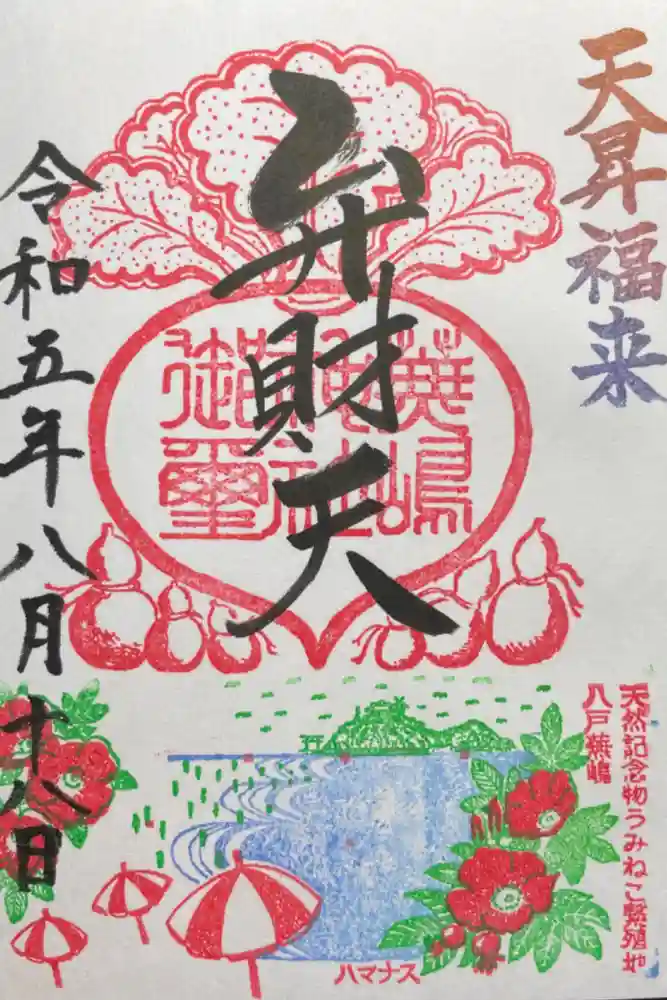 天昇福来
弁財天
蕪嶋
御璽
令和五年八月十八日
天然記念物うみねこ繁殖地
八戸蕪嶋
ハマナス